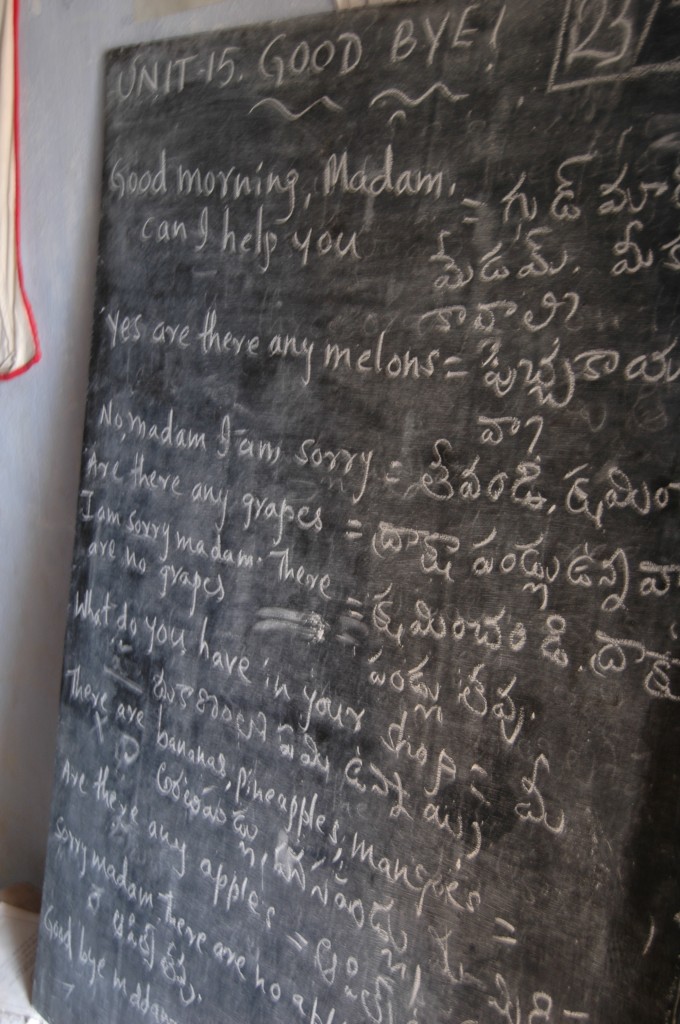 UNIT-15. GOOD BYE! 23
Good morning, Madam. = గుడ్ మా
can I help you మేడమ్. మీ
కావాలి?
Yes are there any melons = పుచ్చకాయ
వా?
No, madam I am sorry = లేవండి. క్షమిం
Are there any grapes = ద్రాక్ష పండ్లు ఉన్నవా
I am sorry madam. There = క్షమించండి. ద్రాక్ష
are no grapes పండ్లు లేవు.
What do you have in your shop = మీ
దుకాణంలో ఏమి ఉన్నాయి
There are bananas, pineapples, mangoes =
అరటిపండ్లు,
Are there any apples =
sorry madam there are no appl
లేవు.
Good bye madam